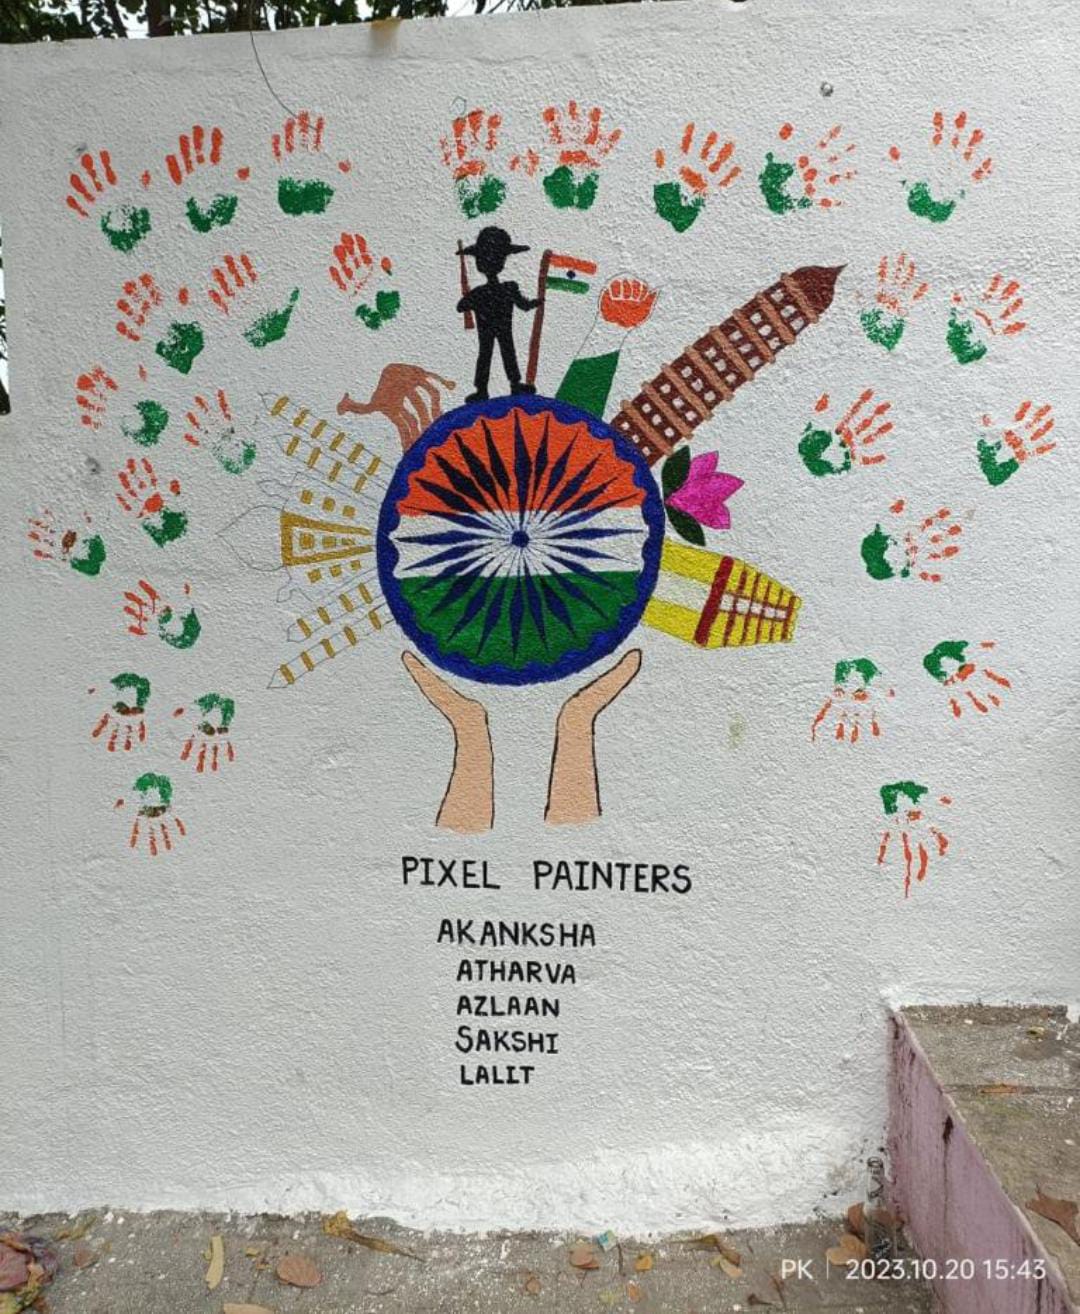 PIXEL PAINTERS
AKANKSHA
ATHARVA
AZLAAN
SAKSHI
LALIT
PK | 2023.10.20 15:43